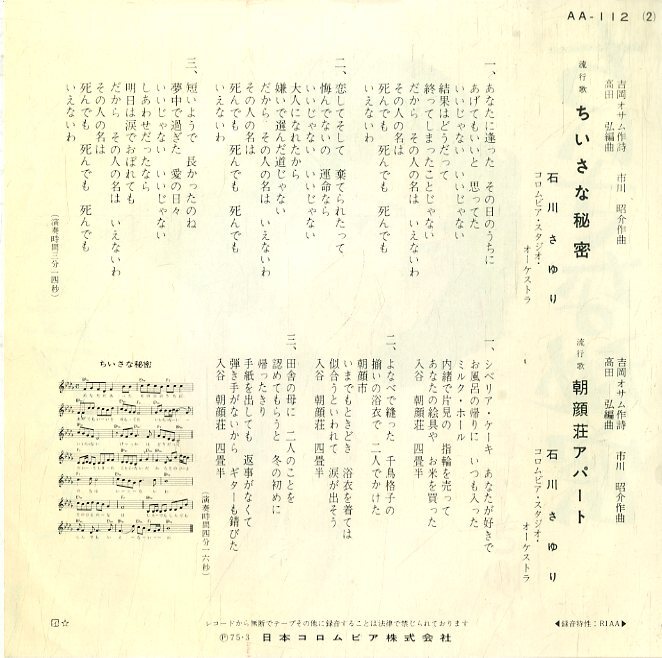 AA-112 (2)
吉岡オサム作詩　市川昭介作曲
高田　弘編曲
流行歌　ちいさな秘密
石川さゆり
コロムビア・スタジオ・オーケストラ
一、あなたに逢った　その日のうちに
あげてもいいと　思ってた
いいじゃない　いいじゃない
結果はどうだって
終ってしまったことじゃない
だから　その人の名は　いえないわ
その人の名は
死んでも　死んでも　死んでも
いえないわ
二、恋してそして　棄てられたって
悔んでないの　運命なら
いいじゃない　いいじゃない
大人になれたから
嫌いで選んだ道じゃない
だから　その人の名は　いえないわ
その人の名は
死んでも　死んでも　死んでも
いえないわ
三、短いようで　長かったのね
夢中で過ぎた　愛の日々
いいじゃない　いいじゃない
しあわせだったなら
明日は涙でおぼれても
だから　その人の名は　いえないわ
その人の名は
死んでも　死んでも　死んでも
いえないわ
（演奏時間三分一四秒）
吉岡オサム作詩　市川昭介作曲
高田　弘編曲
流行歌　朝顔荘アパート
石川さゆり
コロムビア・スタジオ・オーケストラ
一、シベリア・ケーキ　あなたが好きで
お風呂の帰りに　いつも入った
ミルク・ホール
内緒で片見の　指輪を売って
あなたの絵具や　お米を買った
入谷　朝顔荘　四畳半
二、よなべで縫った　千鳥格子の
揃いの浴衣で　二人でかけた
朝顔市
いまでもときどき　浴衣を着ては
似合うといわれて　涙が出そう
入谷　朝顔荘　四畳半
三、田舎の母に　二人のことを
認めてもらうと　冬の初めに
帰ったきり
手紙を出しても　返事がなくて
弾き手がないから　ギターも錆びた
入谷　朝顔荘　四畳半
（演奏時間四分一六秒）
ちいさな秘密
レコードから無断でテープその他に録音することは法律で禁じられております
Ⓟ75・3 日本コロムビア株式会社
◀録音特性：RIAA▶